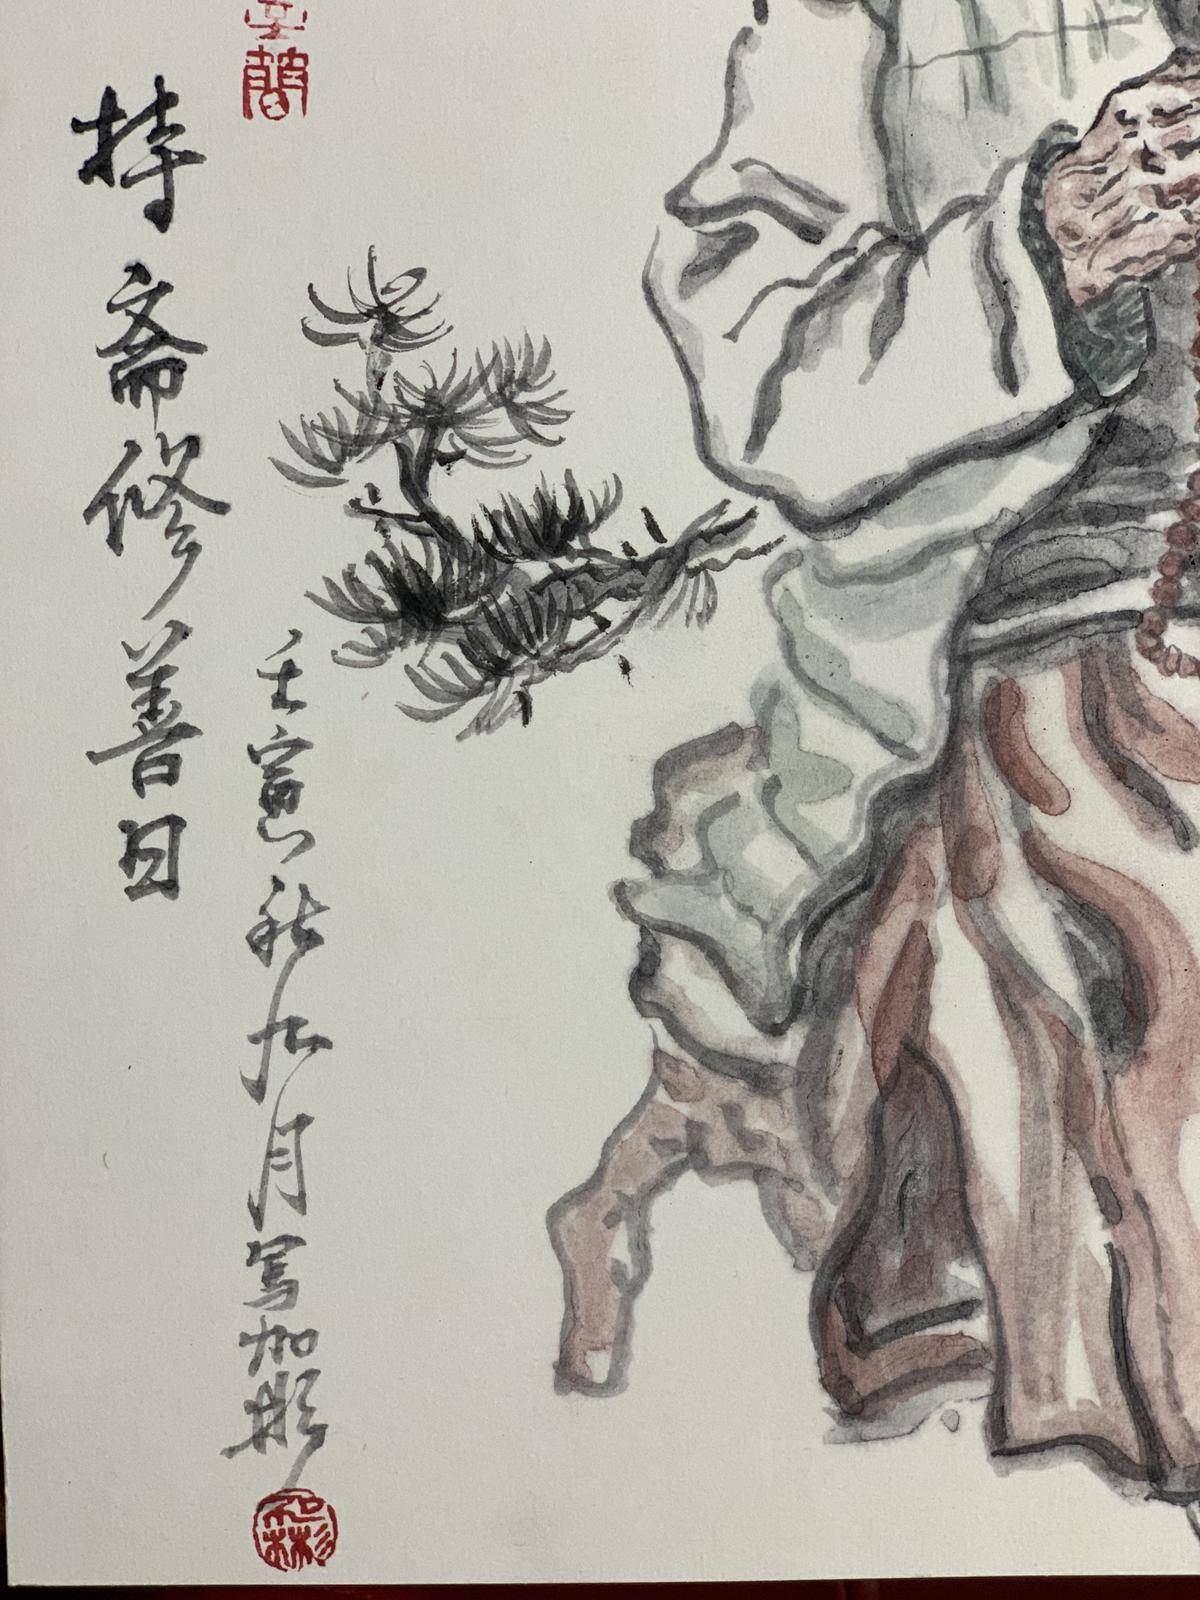 持斋修善日
壬寅秋九月写加彬